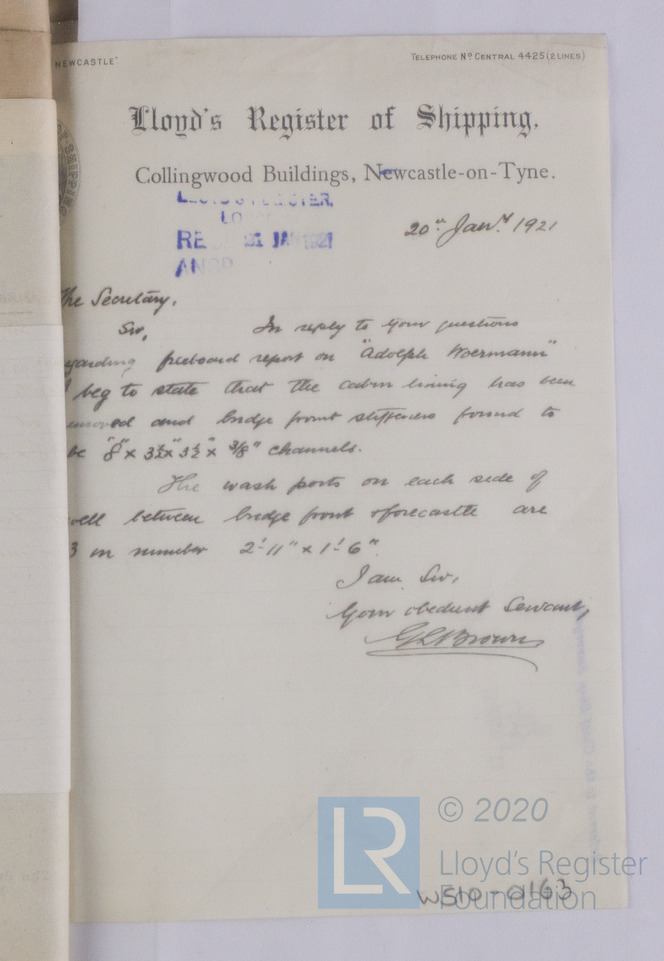 NEWCASTLE"
TELEPHONE Nº CENTRAL 4425 (2 LINES)
OF SHIPPING
Lloyd's Register of Shipping,
Collingwood Buildings, Newcastle-on-Tyne.
LLOYD'S REGISTER,
RE 21 JAN 1921
20th Jany 1921
The Secretary.
Sir, In reply to your questions
garding freeboard report on "Adolph Woermann"
I beg to state that the cabin lining has been
emoved and bridge front stiffeners found to
be 8" x 3½" x 3½" x 3/8" channels.
The wash ports on each side of
well between bridge front & forecastle are
3 in number 2'-11" x 1'-6".
I am Sir,
Your obedient Servant,
G L Brown
LR
© 2020
Lloyd's Register
Foundation
WS10-0163